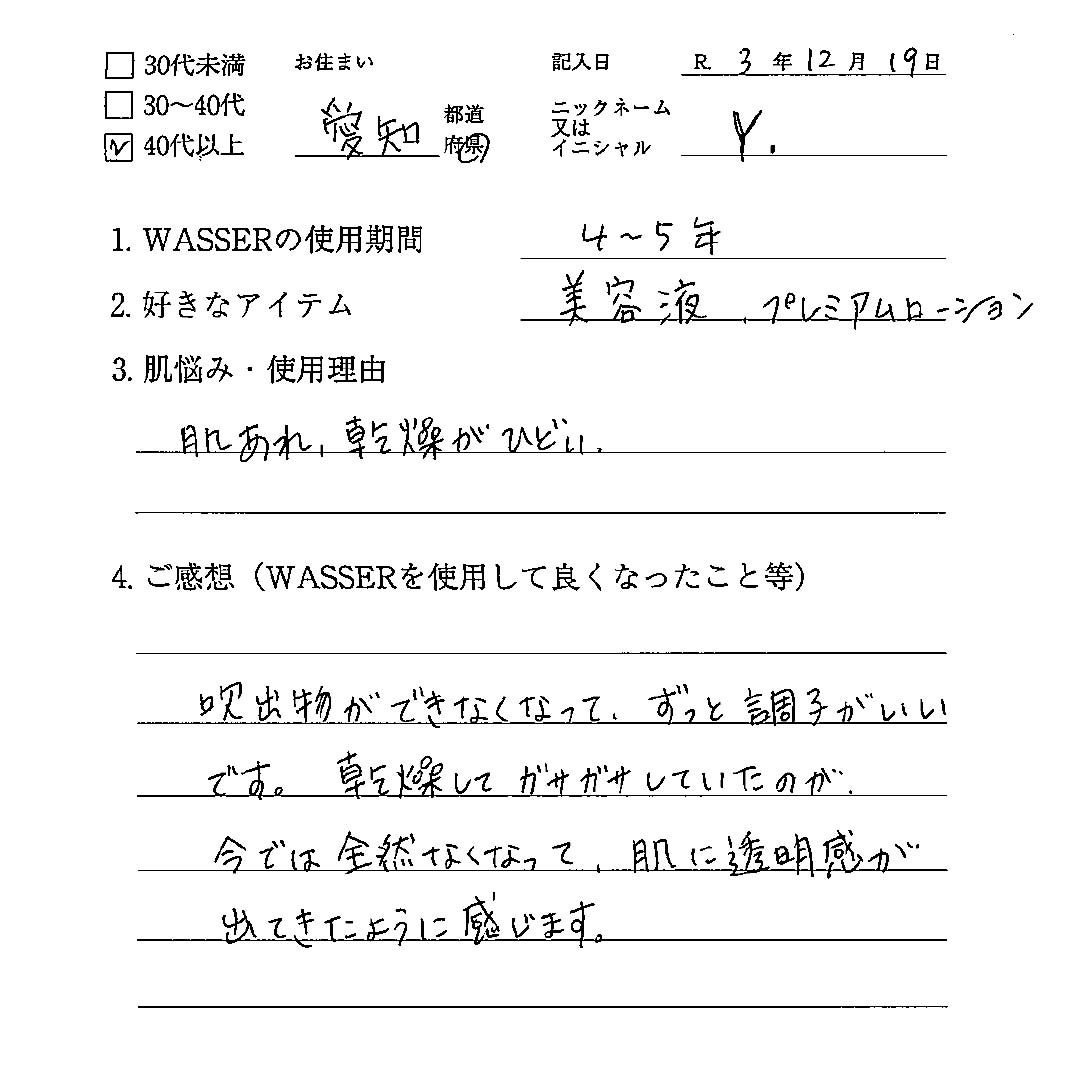 30代未満 お住まい 記入日 R. 3 年 12 月 19 日
30〜40代 愛知 都道府県 ニックネーム又はイニシャル Y.
40代以上
1. WASSERの使用期間 4〜5年
2. 好きなアイテム 美容液、プレミアムローション
3. 肌悩み・使用理由
肌あれ、乾燥がひどい.
4. ご感想（WASSERを使用して良くなったこと等）
吹出物ができなくなって、ずっと調子がいい
です。乾燥してガサガサしていたのが、
今では全然なくなって、肌に透明感が
出てきたように感じます。